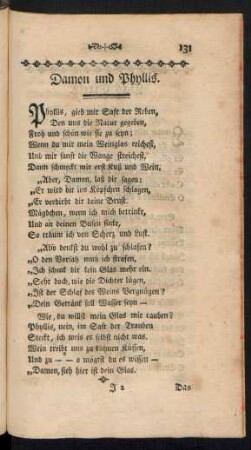 131
Damon und Phyllis.
Phyllis, gieb mir Saft der Reben,
Den uns die Natur gegeben,
Froh und schön wie sie zu seyn;
Wenn du mir mein Weinglas reichest,
Und mir sanft die Wange streichest,
Dann schmeckt mir erst Kuß und Wein.
„Aber, Damon, laß dir sagen:
„Er wird dir ins Köpfchen schlagen,
„Er verdirbt dir deine Brust.
Mägdchen, wenn ich mich betrinke,
Und an deinen Busen sinke,
So träum ich von Scherz und Lust.
„Also denkst du wohl zu schlafen?
„O den Vorsatz muß ich strafen,
„Ich schenk dir kein Glas mehr ein.
„Seht doch, wie die Dichter lügen,
„Ist der Schlaf des Weins Vergnügen?
„Dein Getränk soll Wasser seyn —
Wie, du willst mein Glas mir rauben?
Phyllis, nein, im Saft der Trauben
Steckt, ich weis es selbst nicht was.
Wein treibt uns zu kühnen Küssen,
Und zu — — o mögst du es wissen —
„Damon, sieh hier ist dein Glas.
J 2
Das